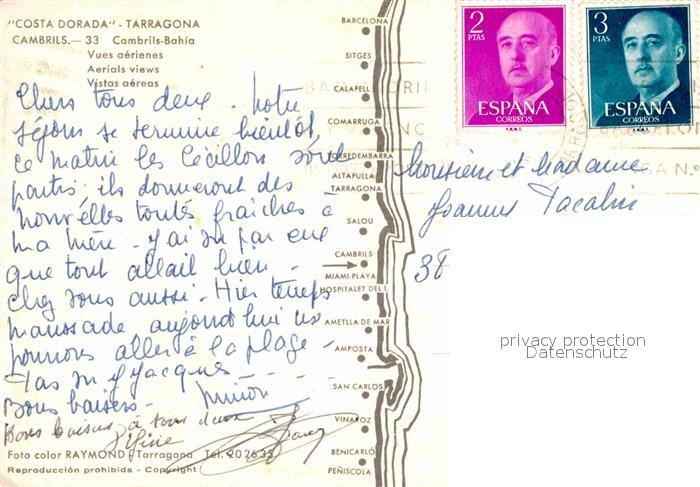 "COSTA DORADA" - TARRAGONA
CAMBRILS.— 33 Cambrils-Bahía
Vues aérienes
Aerials views
Vistas aéreas
Chers tous deux - Notre
séjour se termine bientôt,
ce matin les Cécillon sont
partis. ils donneront des
nouvelles toutes fraîches à
ma mère - j'ai su par eux
que tout allait bien -
chez vous aussi - Hier temps
maussade aujourd'hui
pouvons aller à la plage -
Pas vu
Bons baisers -
Bons baisers à tous deux
Foto color RAYMOND - Tarragona Tel. 20 26 35
Reproducción prohibida - Copyright
BARCELONA
SITGES
CALAFELL
COMARRUGA
TORREDEMBARRA
ALTAFULLA
TARRAGONA
SALOU
CAMBRILS
MIAMI-PLAYA
HOSPITALET DEL I.
AMETLLA DE MAR
AMPOSTA
SAN CARLOS
VINAROZ
BENICARLÓ
PEÑISCOLA
2
PTAS
ESPAÑA
CORREOS
F.N.M.T.
3
PTAS
ESPAÑA
CORREOS
F.N.M.T.
Monsieur et Madame
Joannus
38
privacy protection
Datenschutz